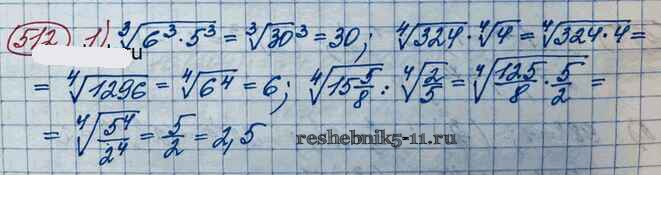 512 1) ∛(6³·5³) = ∛30³ = 30; ∜324·∜4 = ∜(324·4) =
= ∜1296 = ∜6⁴ = 6; ∜(15 5/8) : ∜(2/5) = ∜(125/8 · 5/2) =
= ∜(5⁴/2⁴) = 5/2 = 2,5
reshebnik5-11.ru